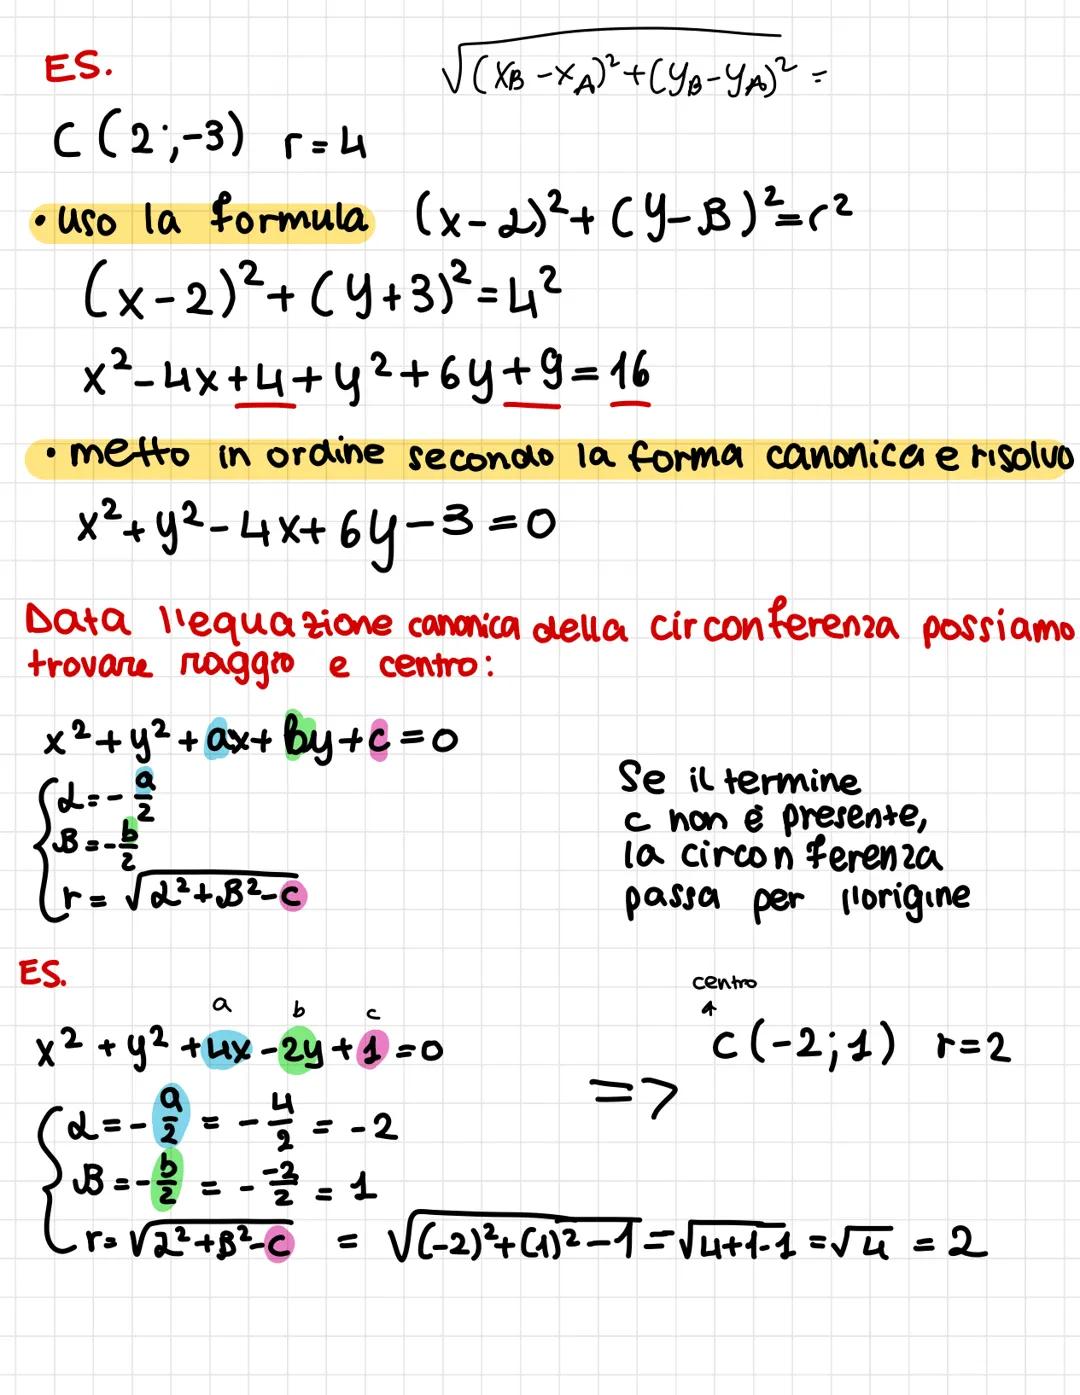 ES.
√(x_B - x_A)² + (y_B - y_A)² =
C (2;-3) r=4
• uso la formula (x-α)² + (y-β)² = r²
(x-2)² + (y+3)² = 4²
x² - 4x + 4 + y² + 6y + 9 = 16
• metto in ordine secondo la forma canonica e risolvo
x² + y² - 4x + 6y - 3 = 0
Data l'equazione canonica della circonferenza possiamo
trovare raggio e centro:
x² + y² + ax + by + c = 0
α = - a/2
β = - b/2
r = √α² + β² - c
Se il termine
c non è presente,
la circonferenza
passa per l'origine
ES.
a b c
x² + y² + 4x - 2y + 1 = 0
α = - a/2 = - 4/2 = -2
β = - b/2 = - -2/2 = 1
r = √α² + β² - c = √(-2)² + (1)² - 1 = √4+1-1 = √4 = 2
=>
centro
C (-2;1) r=2